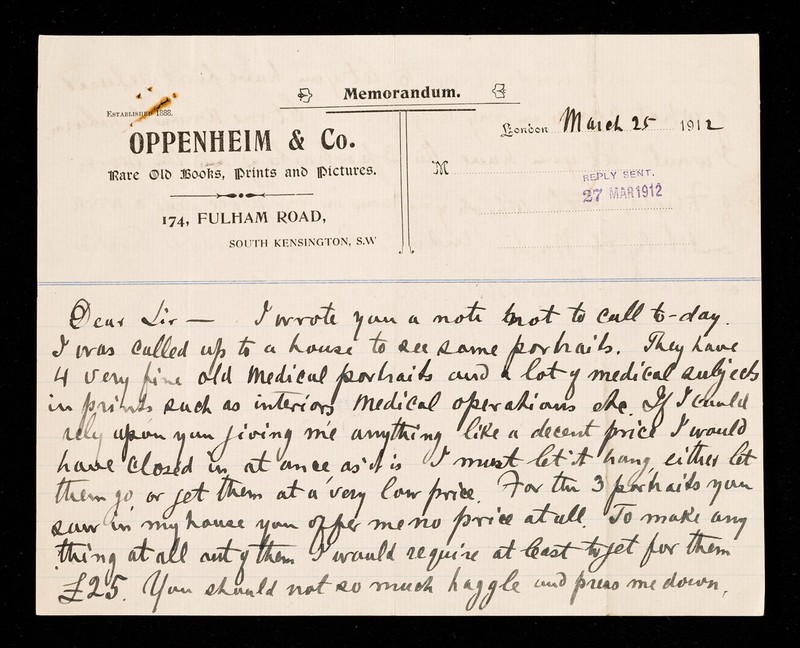 Memorandum.
ESTABLISHED 1888.
OPPENHEIM & Co.
Rare Old Books, Prints and Pictures.
174, FULHAM ROAD,
SOUTH KENSINGTON, S.W
London March 25 1912
M
REPLY SENT.
27 MAR 1912
Dear Sir — I wrote you a note not to call to-day.
I was called up to a house to see some portraits. They have
4 very fine old Medical portraits and a lot of medical subjects
in prints such as interiors Medical operations etc. If I could
rely upon you giving me anything like a decent price I would
have closed in at once as it is I must let it hang, either let
them go or get them at a very low price. For the 3 portraits you
saw in my house you offer me no price at all. To make any
thing at all out of them I would require at least to get for them
£25. You should not so much haggle and press me down,